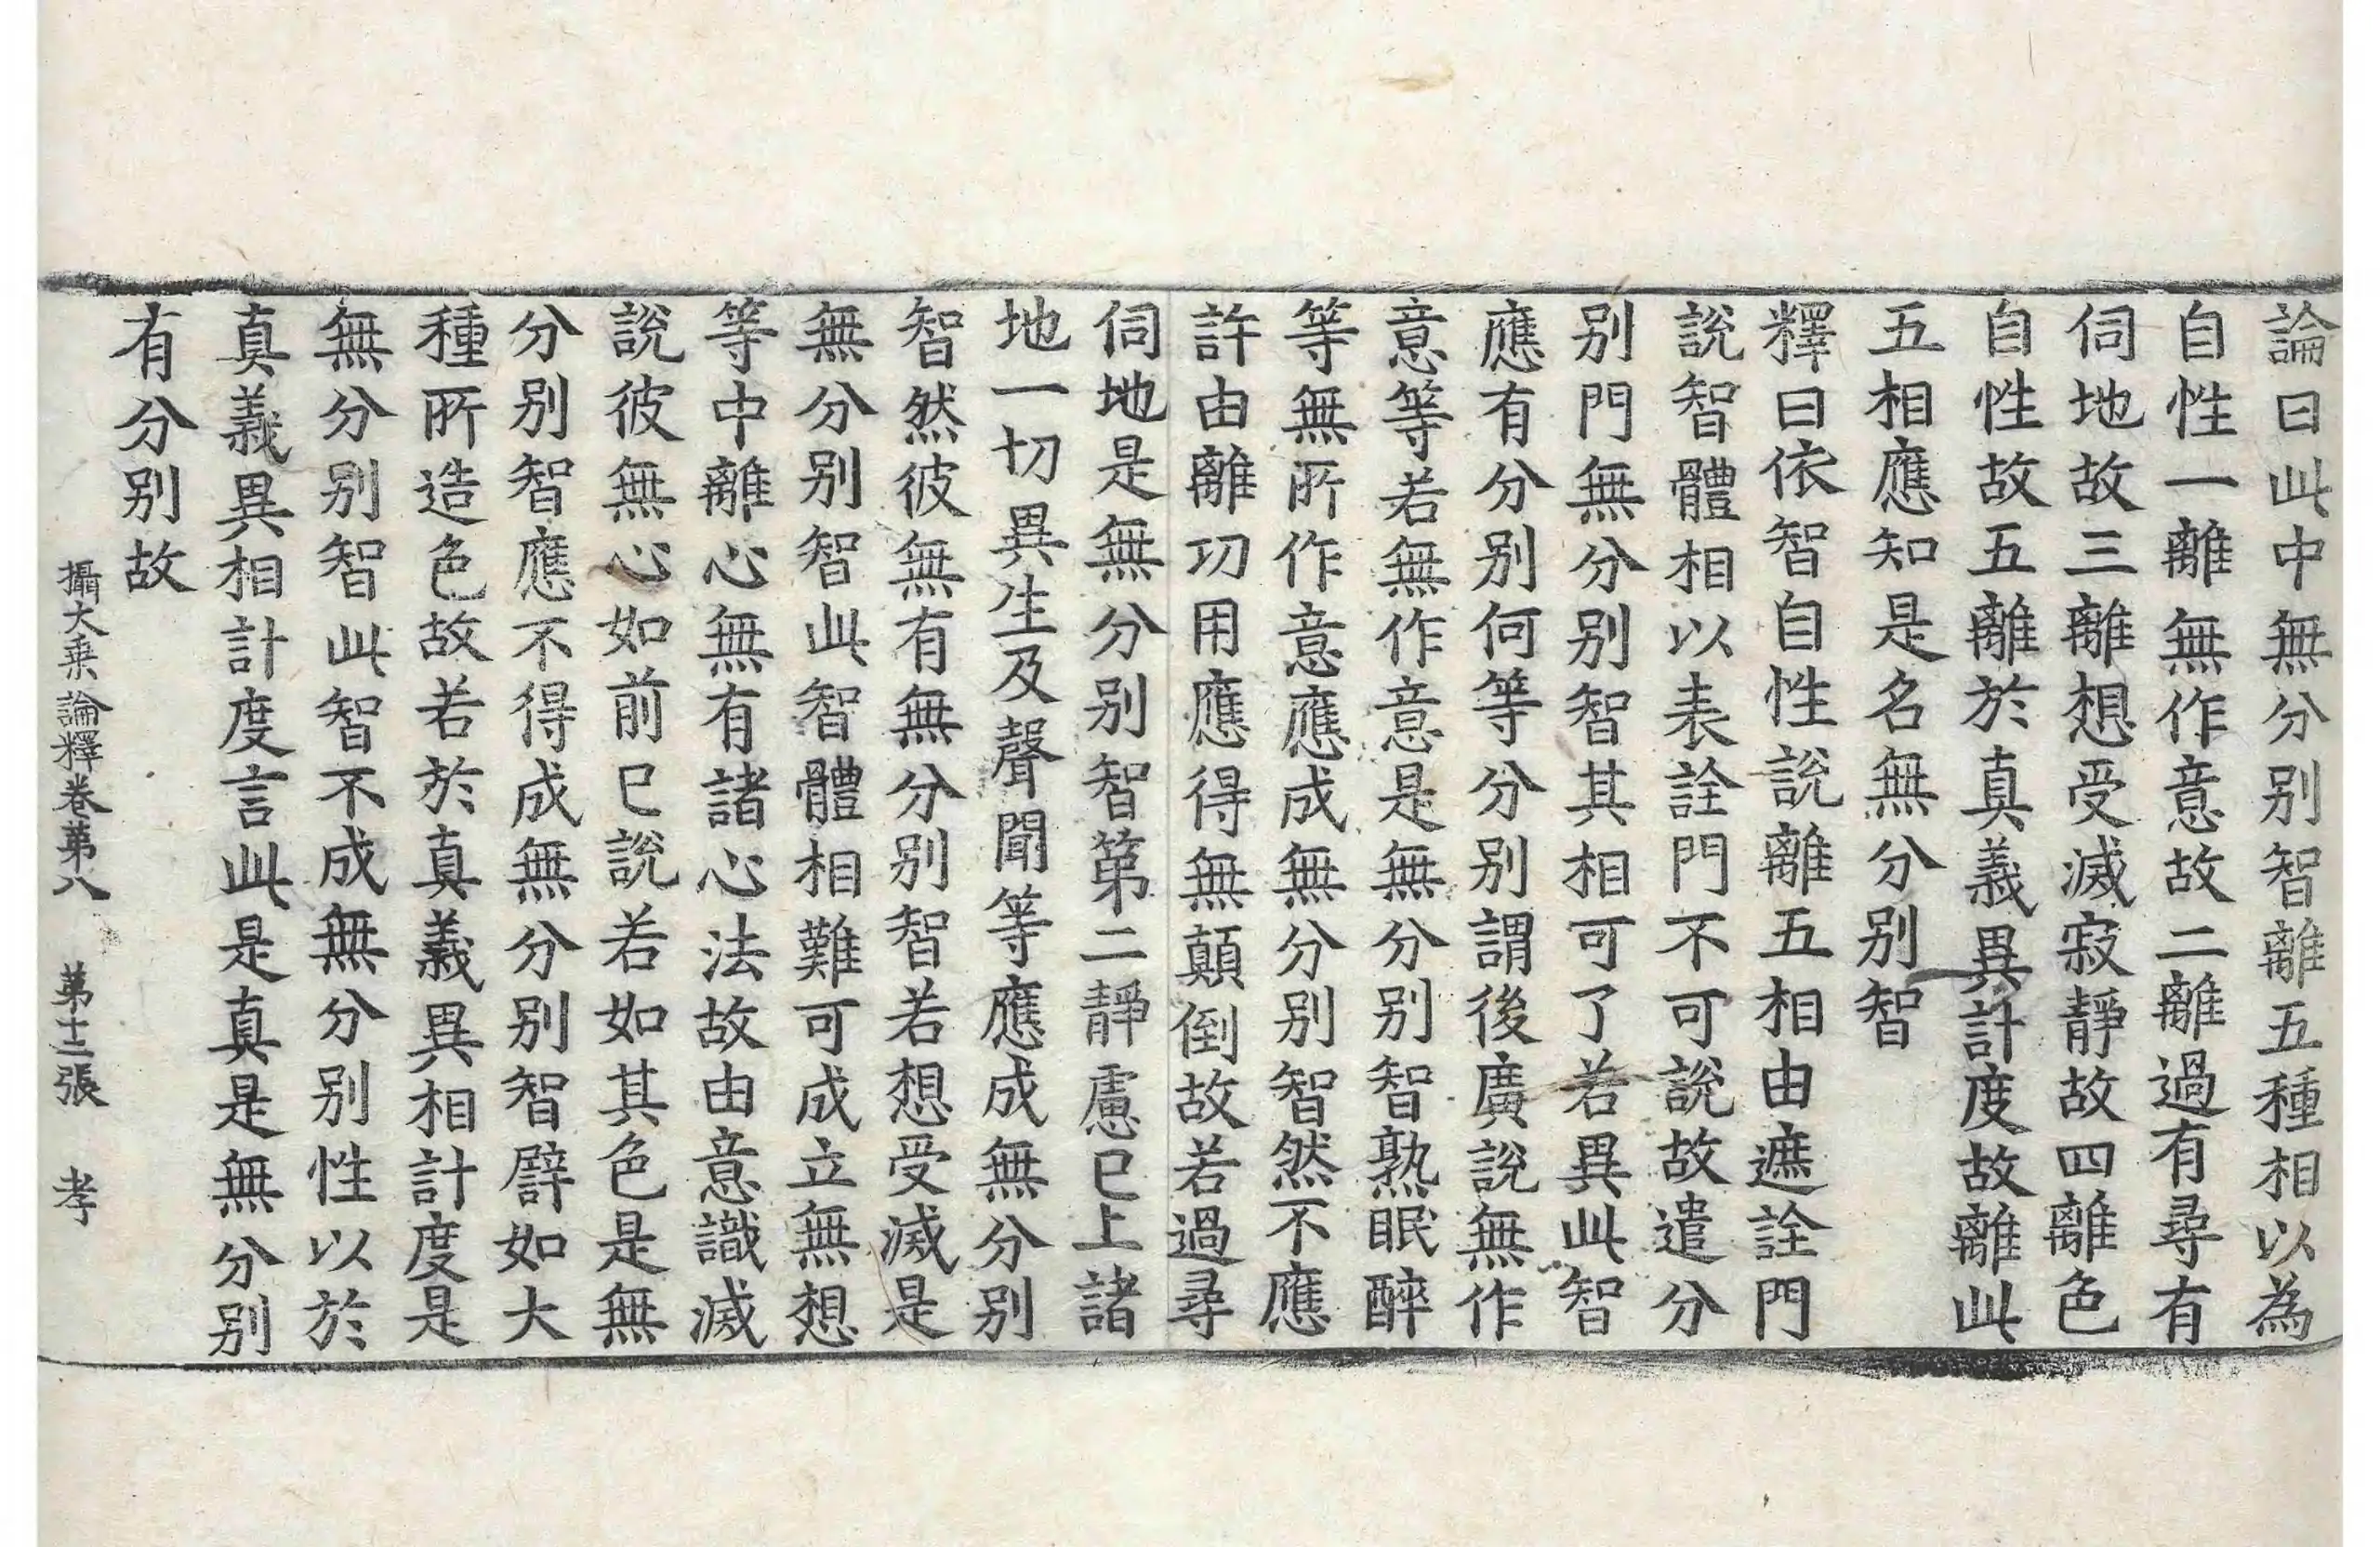 論曰此中無分别智離五種相以為
自性一離無作意故二離過有尋有
伺地故三離想受滅寂靜故四離色
自性故五離於真義異計度故離此
五相應知是名無分别智
釋曰依智自性說離五相由遮詮門
說智體相以表詮門不可說故遣分
别門無分别智其相可了若異此智
應有分别何等分别謂後廣說無作
意等若無作意是無分别智熟眠醉
等無所作意應成無分别智然不應
許由離功用應得無顛倒故若過尋
伺地是無分别智第二靜慮已上諸
地一切異生及聲聞等應成無分别
智然彼無有無分别智若想受滅是
無分别智此智體相難可成立無想
等中離心無有諸心法故由意識滅
說彼無心如前已說若如其色是無
分别智應不得成無分别智譬如大
種所造色故若於真義異相計度是
無分别智此智不成無分别性以於
真義異相計度言此是真是無分别
有分别故
攝大乗論釋卷第八　第十三張　孝